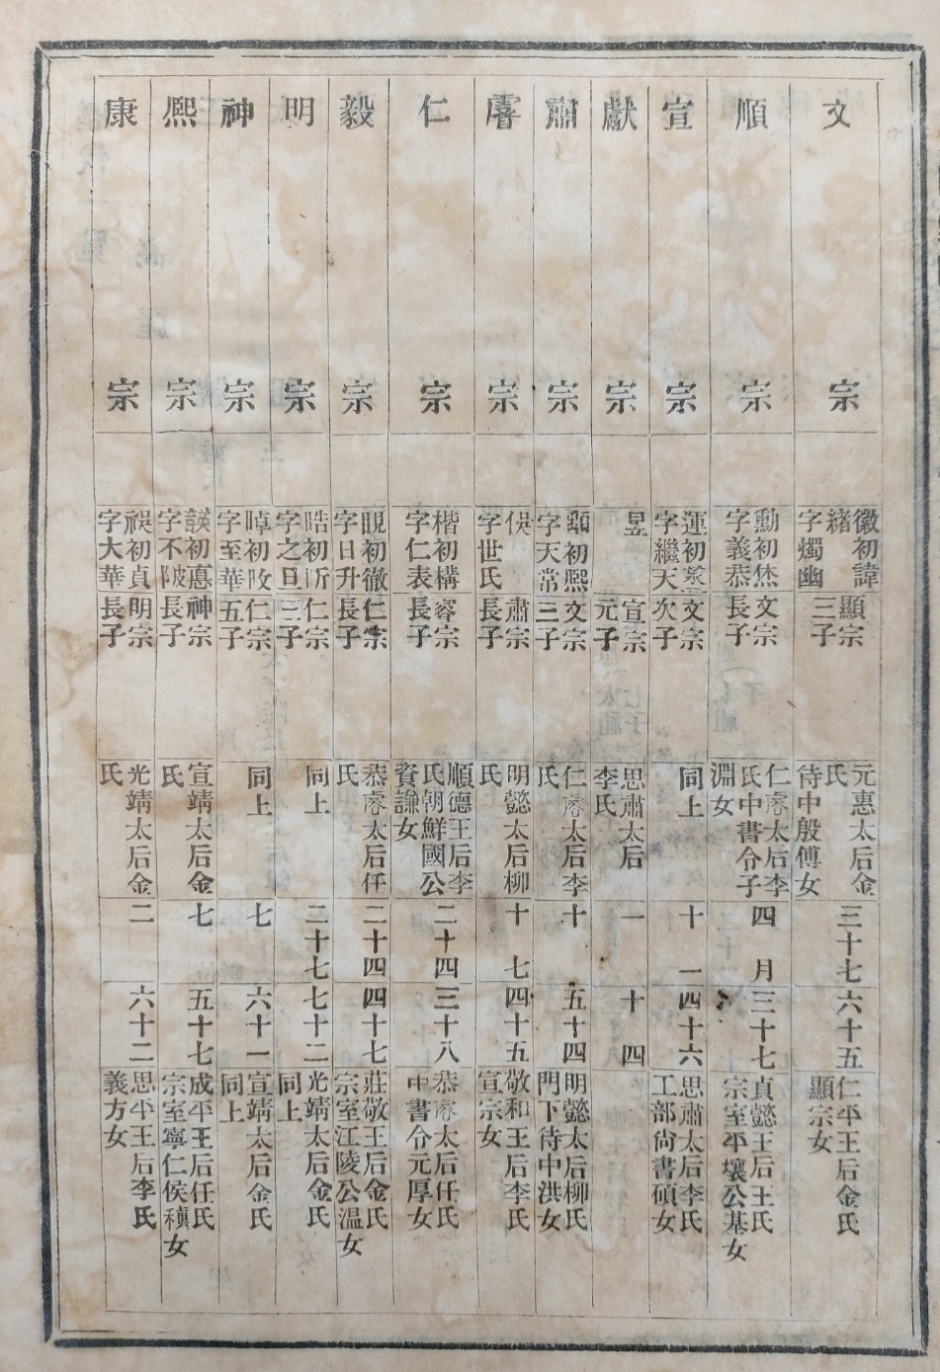 文宗
徽初諱
緒
字燭幽
顯宗
三子
元惠太后金
氏
待中殷傅女
三十七
六十五
仁平王后金氏
顯宗女
順宗
勳初烋
字義恭
文宗
長子
仁睿太后李
氏中書令子
淵女
四月
三十七
貞懿王后王氏
宗室平壤公基女
宣宗
運初蒸
字繼天
文宗
次子
同上
十一
四十六
思肅太后李氏
工部尙書碩女
獻宗
昱
宣宗
元子
思肅太后
李氏
一
十四
肅宗
顒初熙
字天常
文宗
三子
仁睿太后李
氏
十
五十四
明懿太后柳氏
門下待中洪女
睿宗
俁
字世民
肅宗
長子
明懿太后柳
氏
十七
四十五
敬和王后李氏
宣宗女
仁宗
楷初構
字仁表
睿宗
長子
順德王后李
氏朝鮮國公
資謙女
二十四
三十八
恭睿太后任氏
中書令元厚女
毅宗
晛初徹
字日升
仁宗
長子
恭睿太后任
氏
二十四
四十七
莊敬王后金氏
宗室江陵公溫女
明宗
晧初昕
字之旦
仁宗
三子
同上
二十七
七十二
光靖太后金氏
同上
神宗
晫初旼
字至華
仁宗
五子
同上
七
六十一
宣靖太后金氏
同上
熙宗
韺初悳
字不陂
神宗
長子
宣靖太后金
氏
七
五十七
成平王后任氏
宗室寧仁侯稹女
康宗
祦初貞
字大華
明宗
長子
光靖太后金
氏
二
六十二
思平王后李氏
義方女